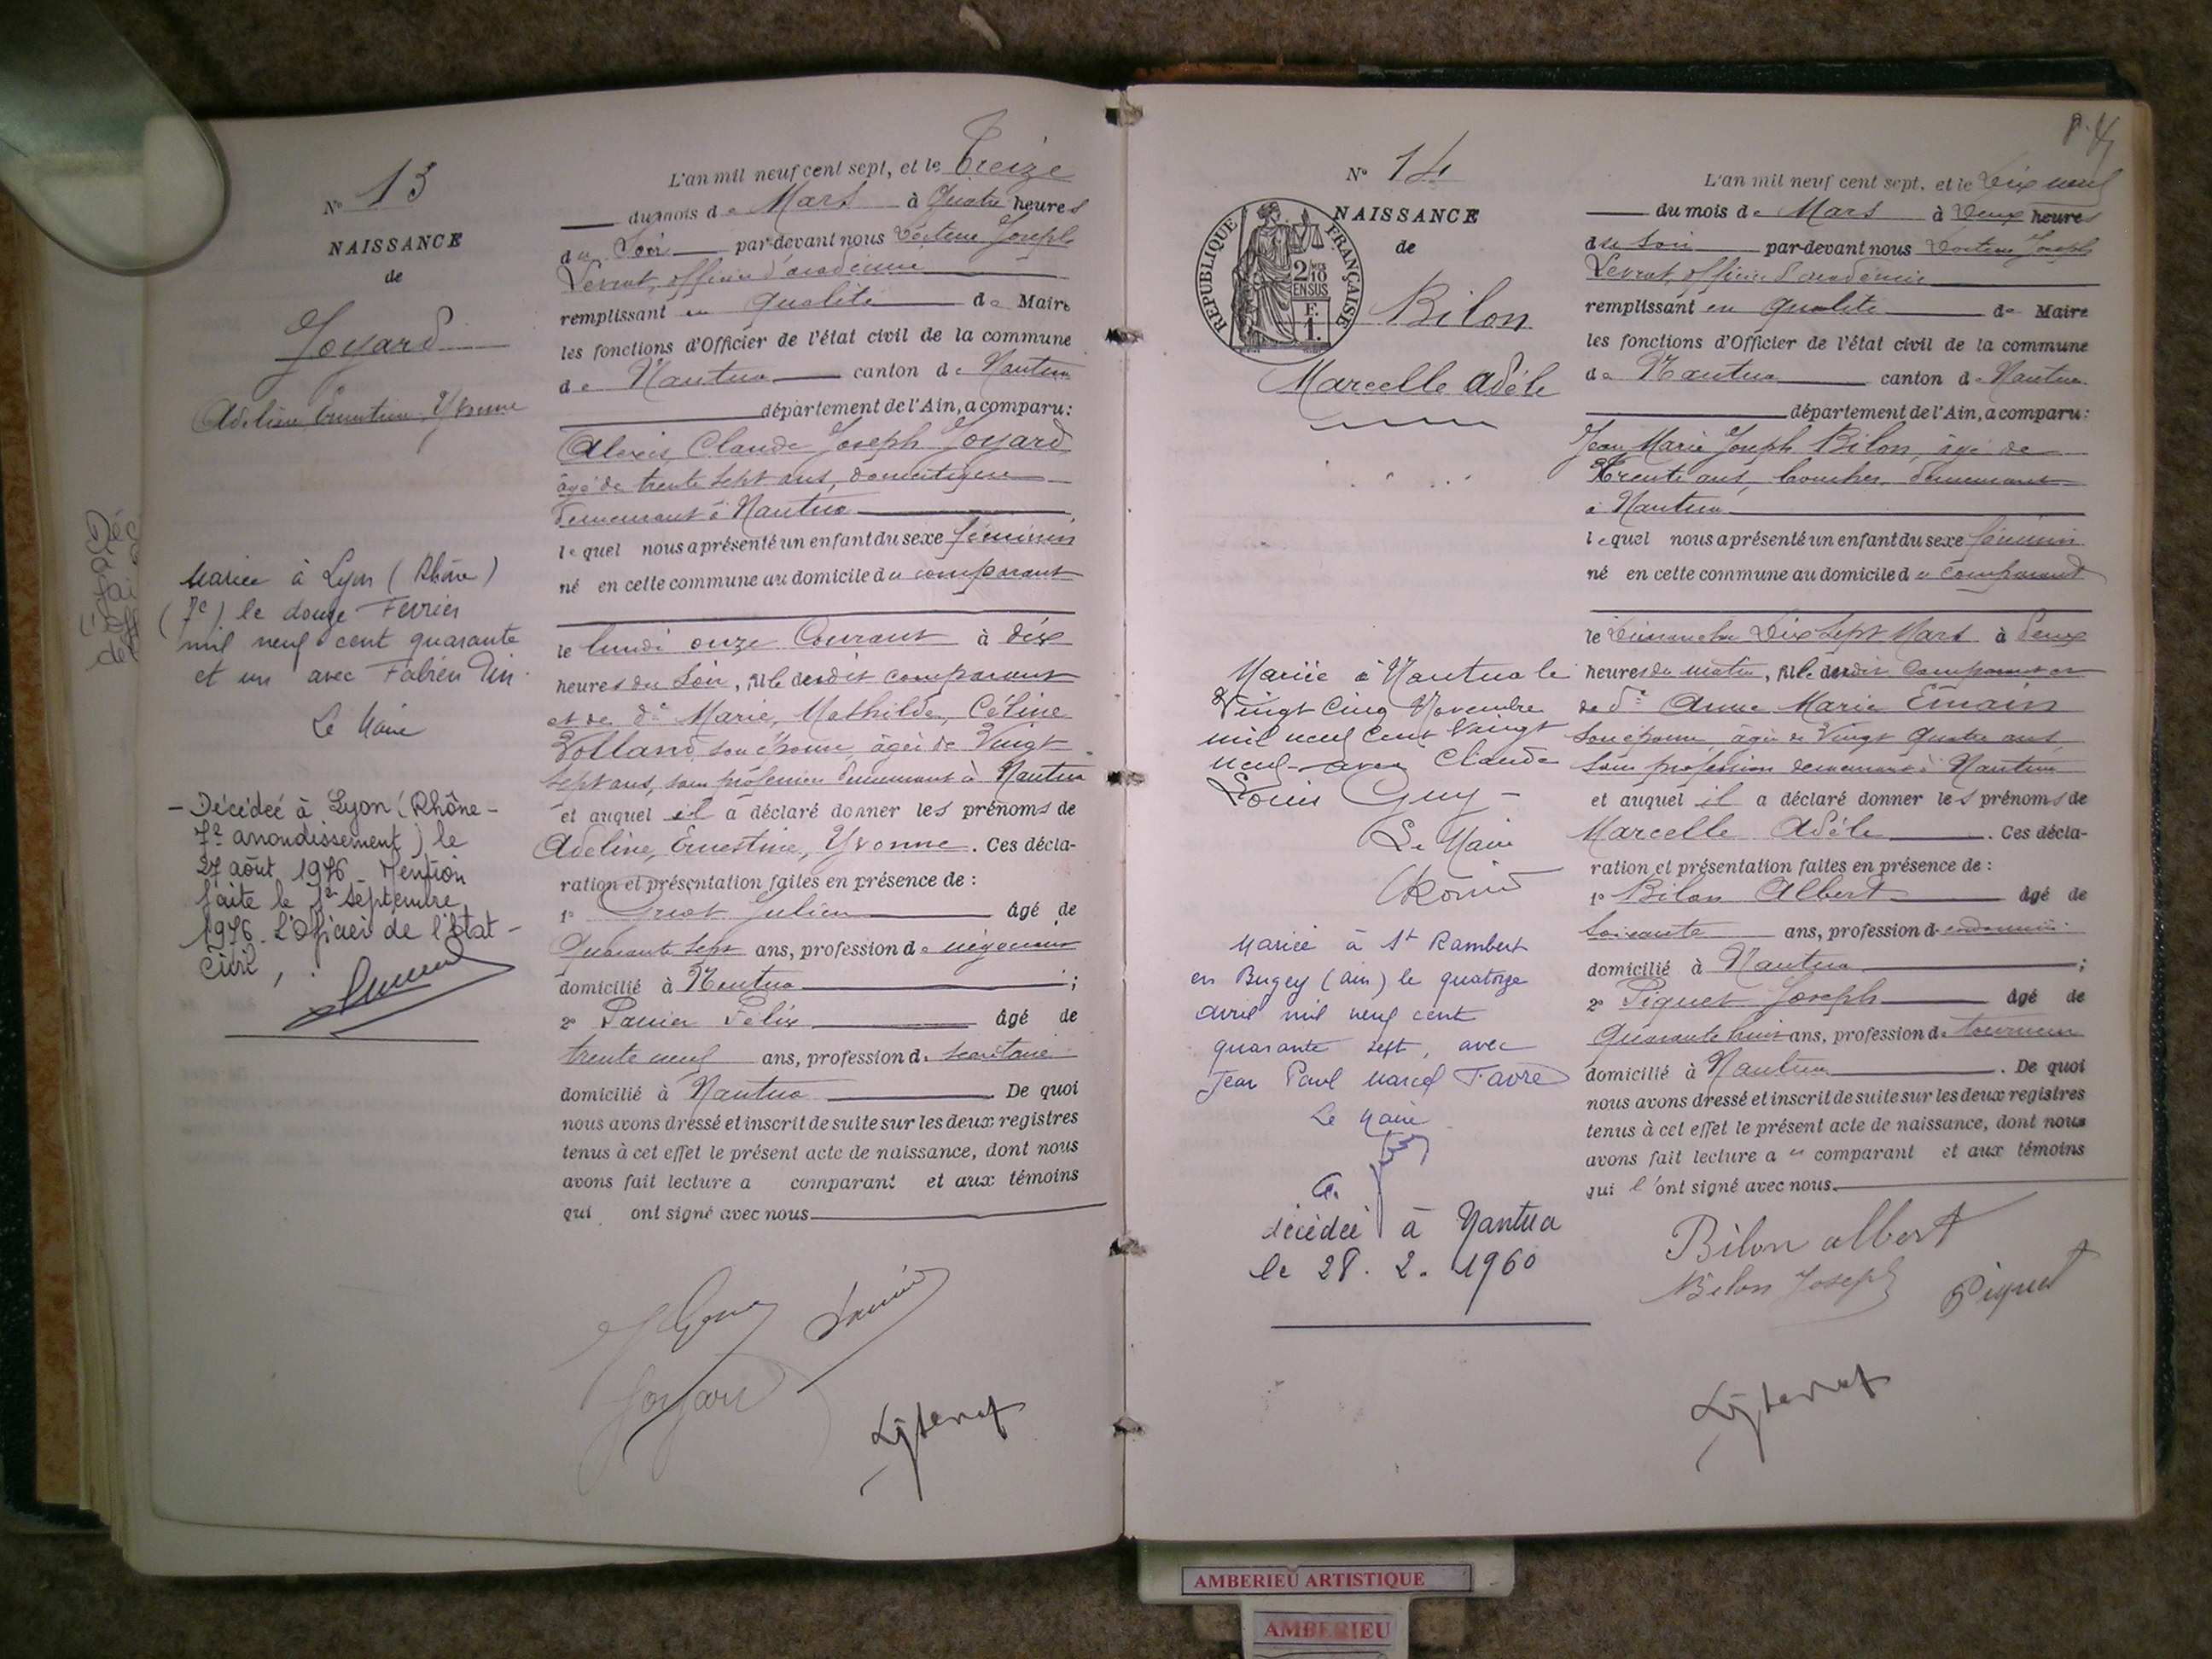 Nº 13
NAISSANCE
de
Joyard
Adeline Ernestine Yvonne
Mariée à Lyon (Rhône)
(7e) le douze Février
mil neuf cent quarante
et un avec Fabien
Le Maire
- Décédée à Lyon (Rhône -
7e arrondissement) le
27 août 1976 Mention
faite le 1er Septembre
1976. L'Officier de l'Etat-
Civil,
L'an mil neuf cent sept, et le Treize
du mois de Mars à Quatre heures
du Soir par-devant nous Joseph
officier d'académie
remplissant en qualité de Maire
les fonctions d'Officier de l'état civil de la commune
de Nantua canton de Nantua
département de l'Ain, a comparu:
Alexis, Claude Joseph Joyard
âgé de trente sept ans, domestique
demeurant à Nantua
lequel nous a présenté un enfant du sexe féminin
né en cette commune au domicile du comparant
le lundi onze Courant à dix
heures du Soir, comparant
et de de Marie, Mathilde, Céline
Volland, son épouse, âgée de Vingt
sept ans, sans profession demeurant à Nantua
et auquel il a déclaré donner les prénoms de
Adeline, Ernestine, Yvonne. Ces décla-
ration et présentation faites en présence de :
1º Julien âgé de
Quarante sept ans, profession de négociant
domicilié à Nantua ;
2º Félix âgé de
trente neuf ans, profession de secrétaire
domicilié à Nantua. De quoi
nous avons dressé et inscrit de suite sur les deux registres
tenus à cet effet le présent acte de naissance, dont nous
avons fait lecture a comparant et aux témoins
qui ont signé avec nous.
Joyard
Nº 14
NAISSANCE
de
RÉPUBLIQUE FRANÇAISE
2/10
EN SUS
F.
1.
Bilon
Marcelle Adèle
Mariée à Nantua le
Vingt Cinq Novembre
mil neuf Cent Vingt
neuf avec Claude
Louis Guy -
Le Maire
Mariée à St Rambert
en Bugey (ain) le quatorze
avril mil neuf cent
quarante sept, avec
Jean Paul Marcel Favre
Le Maire
décédée à Nantua
le 28. 2. 1960
L'an mil neuf cent sept, et le Dix neuf
du mois de Mars à Deux heures
du soir par-devant nous Joseph
officier d'académie
remplissant en qualité de Maire
les fonctions d'Officier de l'état civil de la commune
de Nantua canton de Nantua
département de l'Ain, a comparu:
Jean Marie Joseph Bilon, âgé de
Trente ans, boucher, demeurant
à Nantua
lequel nous a présenté un enfant du sexe féminin
né en cette commune au domicile du comparant
le Dimanche Dix Sept Mars à Deux
heures du matin, comparant et
de de Anne Marie Emain
Son épouse, âgée de Vingt Quatre ans
Sans profession demeurant à Nantua
et auquel il a déclaré donner les prénoms de
Marcelle Adèle. Ces décla-
ration et présentation faites en présence de :
1º Bilon Albert âgé de
Soixante ans, profession de
domicilié à Nantua ;
2º Piquet Joseph âgé de
Quarante huit ans, profession de tourneur
domicilié à Nantua. De quoi
nous avons dressé et inscrit de suite sur les deux registres
tenus à cet effet le présent acte de naissance, dont nous
avons fait lecture au comparant et aux témoins
qui l'ont signé avec nous.
Bilon albert
Bilon Joseph
Piquet
AMBERIEU ARTISTIQUE
AMBERIEU